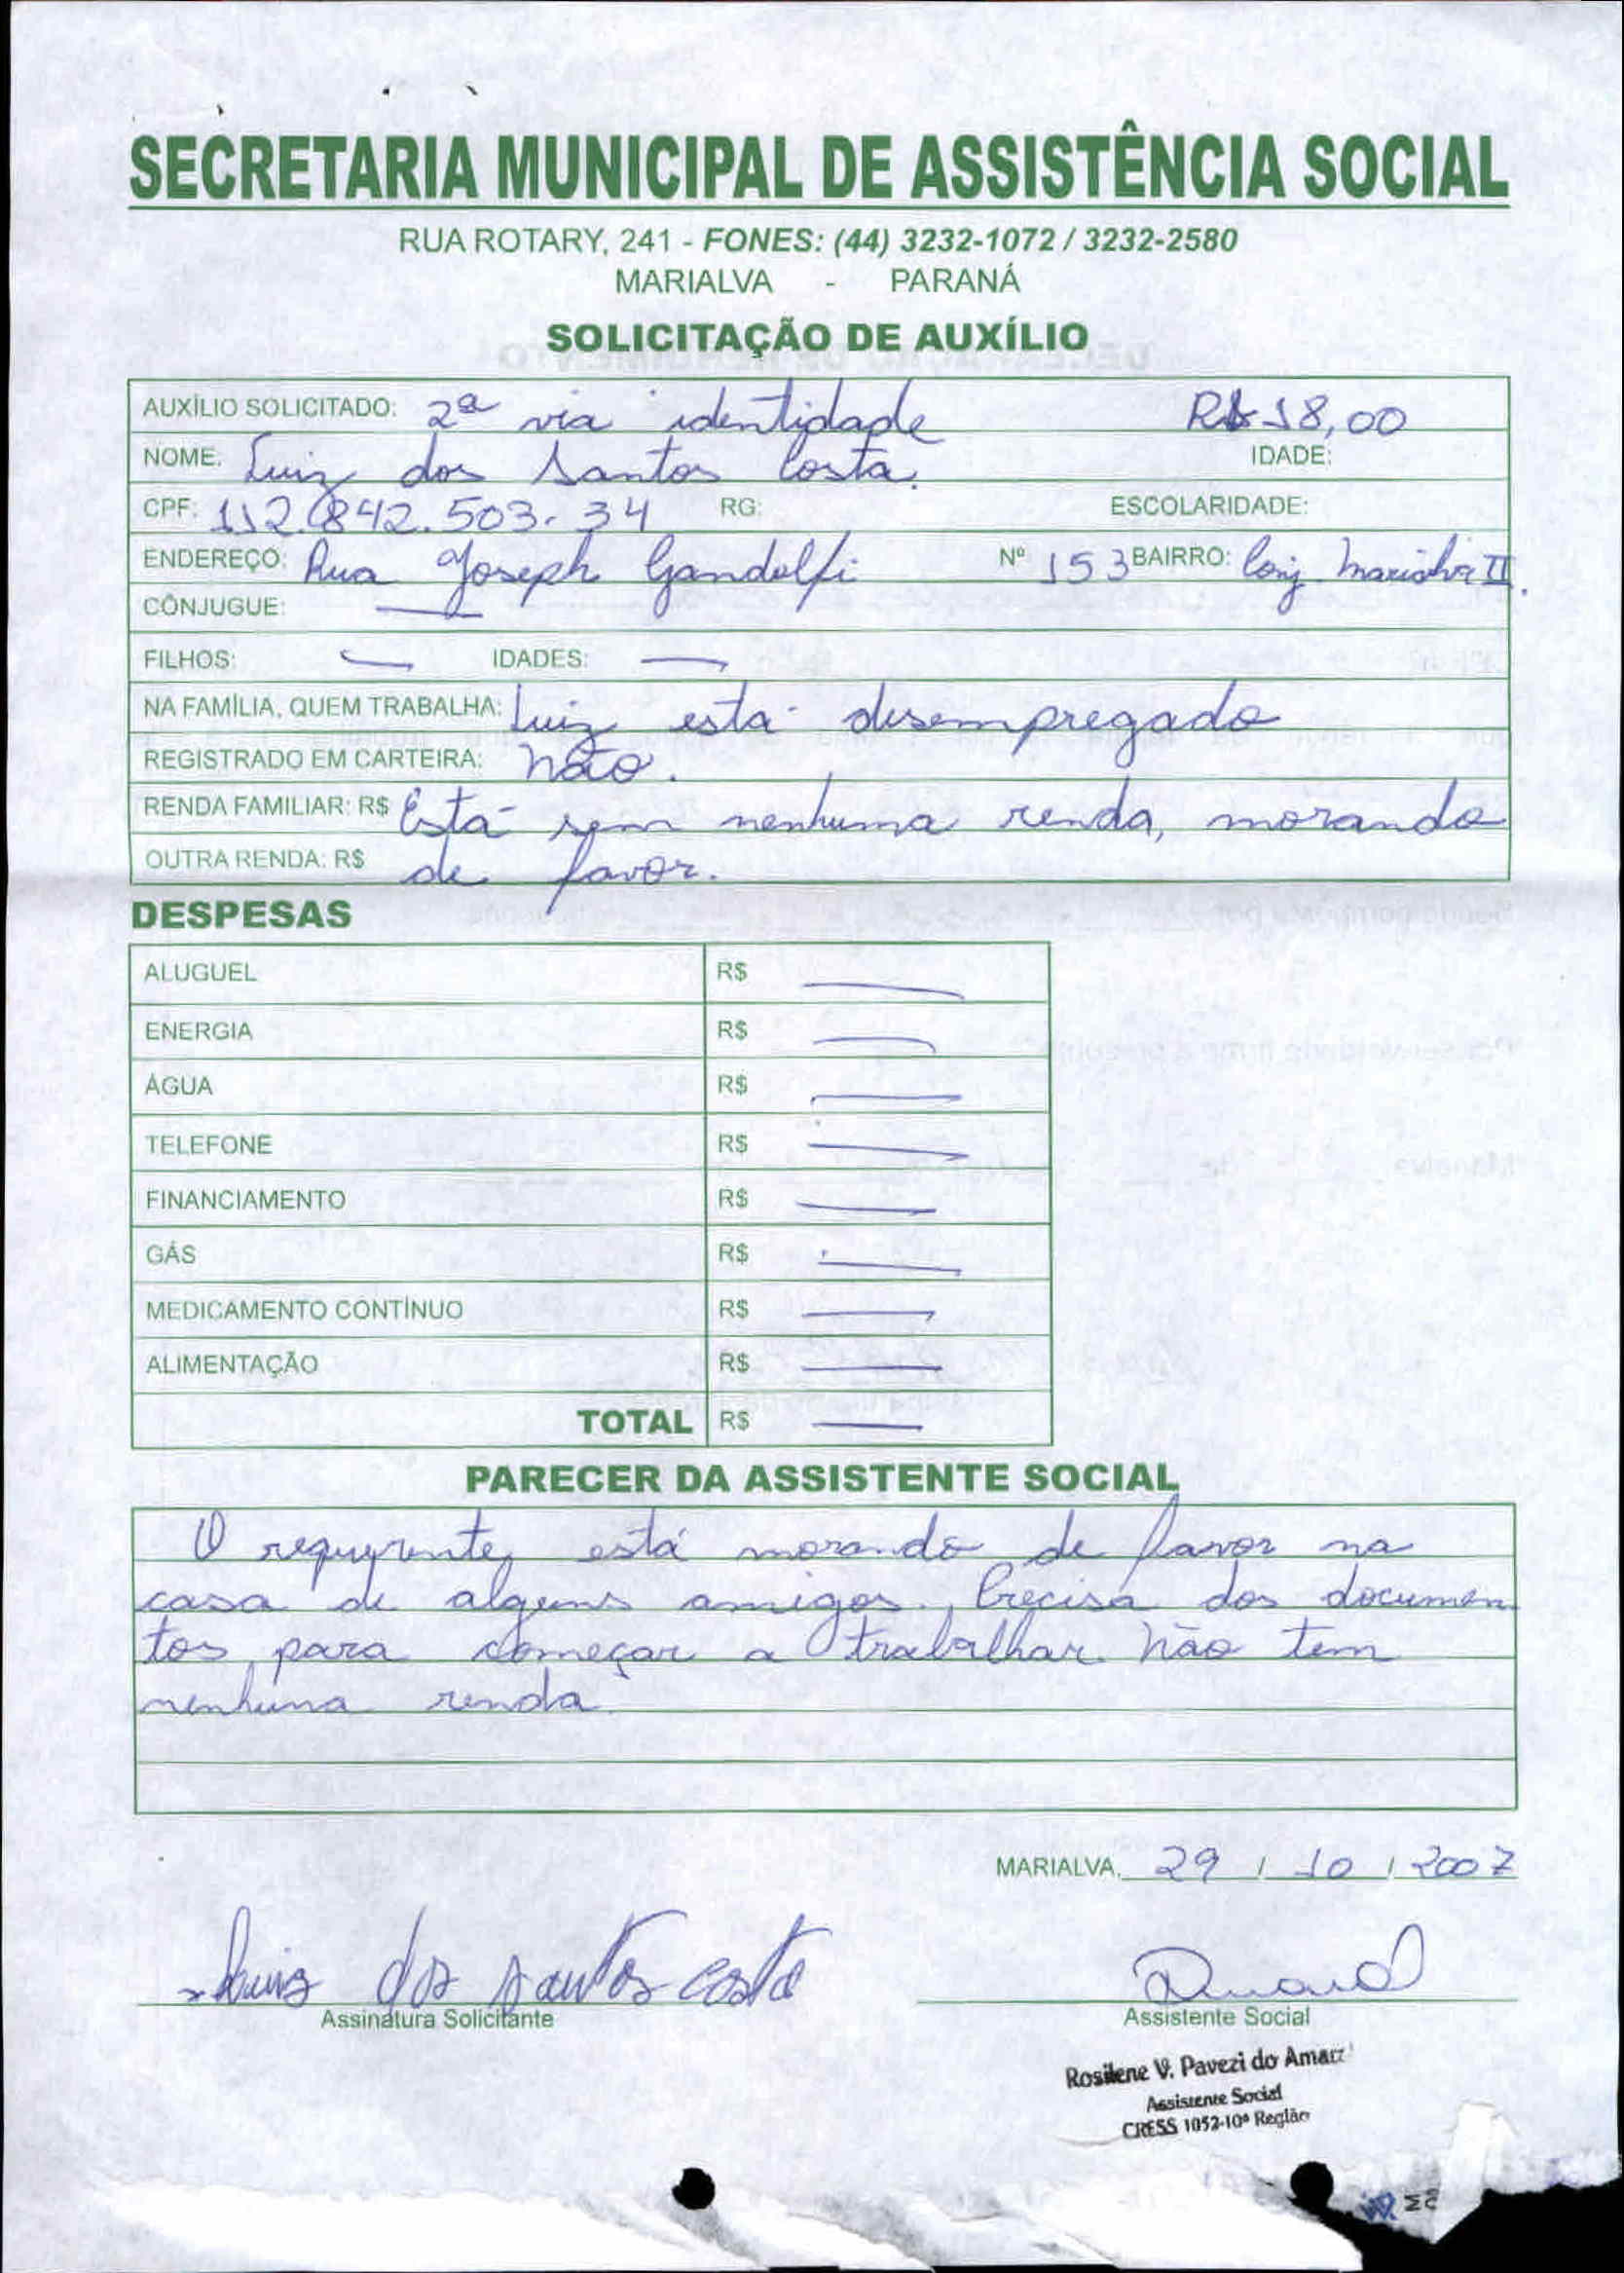 SECRETARIA MUNICIPAL DE ASSISTÊNCIA SOCIAL
RUA ROTARY, 241 - FONES: (44) 3232-1072 / 3232-2580
MARIALVA - PARANÁ
SOLICITAÇÃO DE AUXÍLIO
AUXÍLIO SOLICITADO: 2ª via identidade R$ 18,00
NOME: Luiz dos Santos Costa. IDADE:
CPF: 112.842.503-34 RG: ESCOLARIDADE:
ENDEREÇO: Rua Joseph Gandolfi Nº 153 BAIRRO: Conj II.
CÔNJUGUE: —
FILHOS: — IDADES: —
NA FAMÍLIA, QUEM TRABALHA: Luiz está desempregado
REGISTRADO EM CARTEIRA: não.
RENDA FAMILIAR: R$ Está sem nenhuma renda, morando
OUTRA RENDA: R$ de favor.
DESPESAS
ALUGUEL R$ —
ENERGIA R$ —
ÁGUA R$ —
TELEFONE R$ —
FINANCIAMENTO R$ —
GÁS R$ —
MEDICAMENTO CONTÍNUO R$ —
ALIMENTAÇÃO R$ —
TOTAL R$ —
PARECER DA ASSISTENTE SOCIAL
O requerente, está morando de favor na
casa de alguns amigos. Precisa dos documen
tos para começar a trabalhar. Não tem
nenhuma renda.
MARIALVA, 29 / 10 / 2007
Luiz dos Santos Costa
Assinatura Solicitante Assistente Social
Rosilene V. Pavezi do Amaral
Assistente Social
CRESS 1052-10ª Região